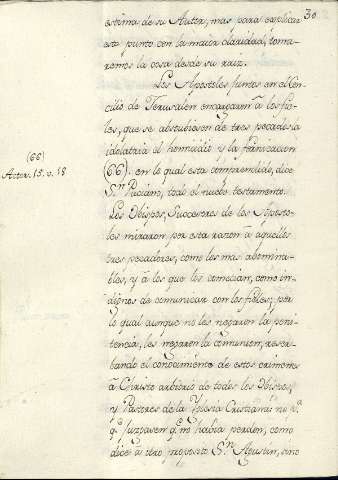 30
estima de su Autor, mas para explicar
este punto con la maior claridad, toma-
remos la cosa desde su raiz.
Los Apostoles juntos en el Con-
cilio de Jerusalen encargaron à los fie-
les, que se abstubiesen de tres pecados la
idolatria el homicidio y la fornicacion
(66)
(66). en lo qual esta comprendido, dice
Actor. 15. v. 18
Sn. Paciano, todo el nuebo testamento.
Los Obispos, Succesores de los Aposto-
les miraron por esta razon à aquellos
tres pecadores, como los mas abomina-
bles, y à los que los cometian, como in-
dignos de comunicar con los fieles; por
lo qual aunque no les negaron la peni-
tencia, les negaron la comunion, reser-
bando el conocimiento de estos crimenes
à Christo arbitrio de todos los Obispos,
y Pastores de la Yglesia Cristiana: no pr.
qe. juzgasen qe. no habia perdon, como
dice à otro proposito Sn. Agustin, sino